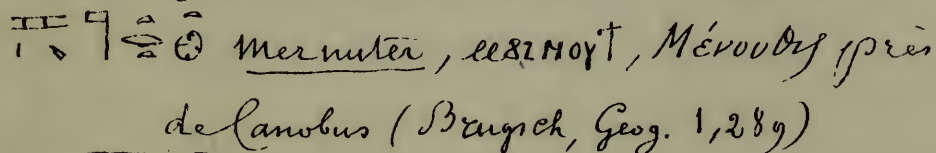 mernuter, Μένουθις près
de Canobus (Brugsch, Geog. 1,289)